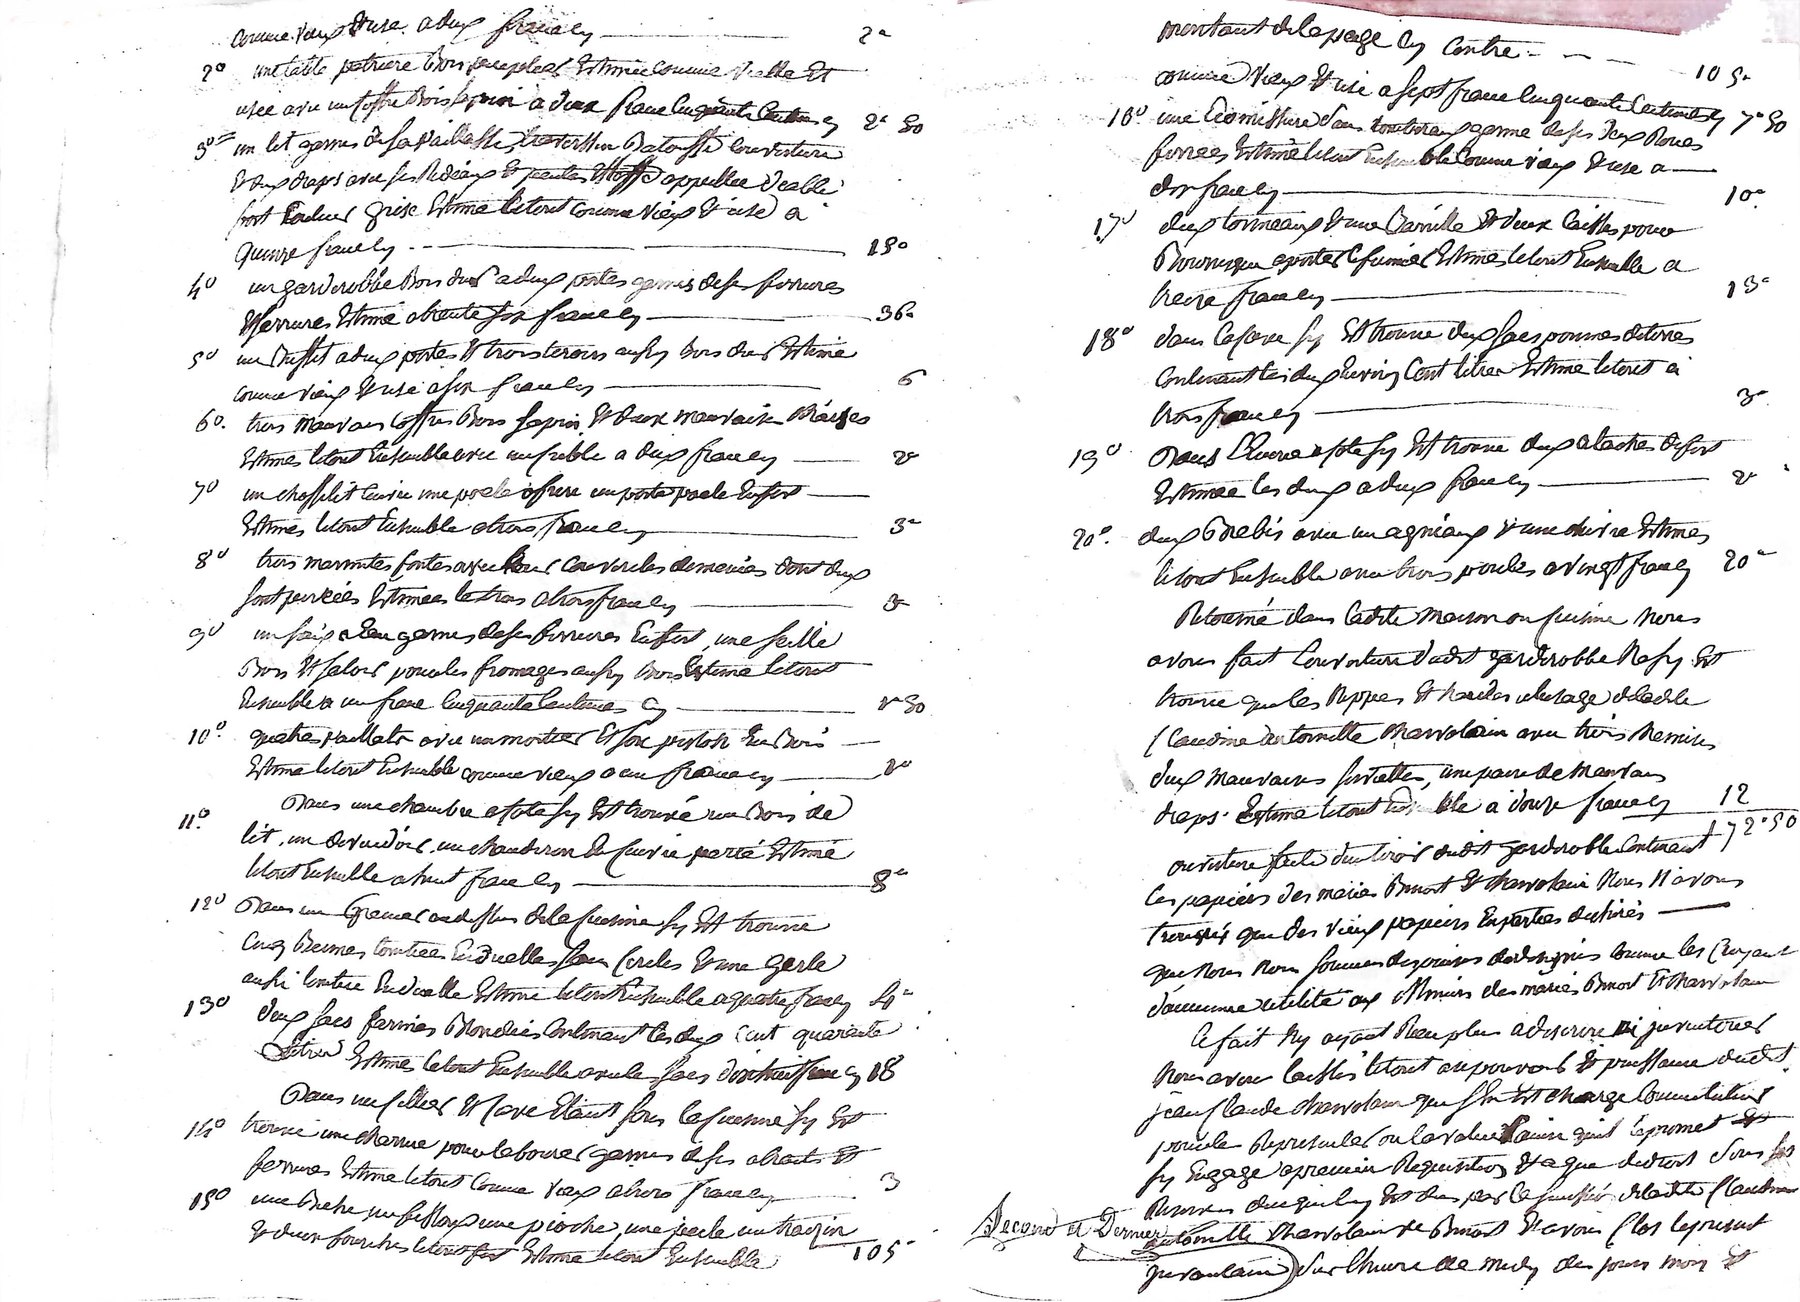 comme vieux et usé a deux francs 2"
2° une table petriere Bois peuplier Estimée comme vielle et
usée avec un coffre Bois sapin a deux francs cinquante centimes 2" 50
3° un lit garnis de sa paillasse, traversin Batousse couverture
et deux draps avec ses Rideaux et pentes Etoffe appellée
fort couleur grise Estimé le tout comme vieux et usé a
quinze francs 15"
4° un garderobbe Bois dur a deux portes garnis de ses ferrures
et serrures Estimé a trente six francs 36"
5° un Buffet a deux portes et trois tiroirs aussy Bois dur Estimé
comme vieux et usé a six francs 6
6° trois mauvais coffres Bois sapin et deux mauvaises
Estimés le tout Ensemble avec un crible a deux francs 2"
7° un cuivre une poele a frire un porte poele En fert
Estimés le tout Ensemble a trois francs 3"
8° trois marmites fontes avec leur couvercles demenies dont deux
sont percées Estimées les trois a trois francs 3"
9° un a Eau garnis de ses ferrures En fert, une seille
Bois et pour les fromages aussy Bois Estimé le tout
Ensemble a un franc cinquante centimes 1" 50
10° quatre paillats avec un mortier et son piston En Bois
Estimé le tout Ensemble comme vieux a un francs 1"
Dans une chambre a coté sy Est trouvé un Bois de
11° lit, un devidoir, un chauderon En cuivre percé Estimé
le tout Ensemble a huit francs 8"
12° Dans un Grenier au dessus de la cuisine sy Est trouvé
cinq Bennes tombées En duelles sans cercles et une gerle
aussi tombée En duelle Estimé le tout Ensemble a quatre francs 4"
13° deux sacs farines Blondées contenant les deux cent quarante
Litres Estimé le tout Ensemble avec les sacs dix huit francs 18
Dans un sellier et cave Etant sous la cuisine sy Est
14° trouvé une charrue pour labourer garnis de ses atraits et
ferrures Estimé le tout comme vieux a trois francs 3
15° une Beche, un une pioche, une
et deux fourches le tout Estimé le tout Ensemble 105"
montant de la page En contre 105"
comme vieux et usé a sept francs cinquante centimes 7" 50
16° une sans tombereaux garnie de ses deux Roues
ferrées Estimé le tout Ensemble comme vieux et usé a
dix francs 10"
17° deux tonneaux et une Barille et deux caisses pour
Bourrique a porter le fumier Estimés le tout Ensemble a
treize francs 13"
18° dans la cave sy Est trouvé deux sacs pommes de terres
contenant les deux Environ cent litres Estimé le tout a
trois francs 3"
19° Dans L'Ecurie a coté sy Est trouvé deux ataches de fert
Estimée les deux a deux francs 2"
20° deux Brebis avec un agneaux et une chevre Estimés
le tout Ensemble avec trois poules a vingt francs 20"
Retourné dans ladite maison ou cuisine Nous
avons fait l'ouverture dudit garderobbe Il sy Est
trouvé que les Nippes et hardes a l'usage de ladite
Claudine antoinette Charvolain avec trois chemises
deux mauvaises serviettes, une paire de mauvais
draps Estimé le tout Ensemble a douze francs 12
172" 50
ouverture faite d'un tiroir dudit garderobbe contenant
les papiers des mariés Benoit et Charvolain Nous N'avons
trouvés que des vieux papiers En parties dechirés
que Nous Nous sommes dispensés de designer comme les Croyant
d'aucune utilité aux Mineurs des mariés Benoit et Charvolain
Ce fait Ny ayant Rien plus a decrire ni jnventorier
Nous avons laissés le tout au pouvoir et puissance dudit
jean Claude Charvolain qui s'En Est chargé
pour le Representer ou la valeur ainsi qu'il le promet et
sy Engage a premiere Requisition et a que de droit sous les
Reserves de ce qui luy Est dus par la succession de ladite Claudine
Second et Dernier
antoinette Charvolain fe Benoit Et avons Clos le present
jnventaire sur l'heure de midy des jours mois et